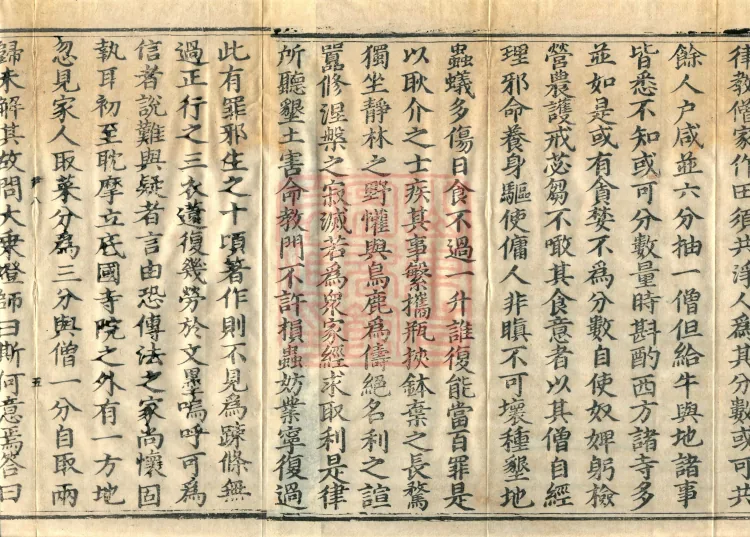 律教僧家作田須共淨人爲其分數或可共
餘人户咸並六分抽一僧但給牛與地諸事
皆悉不知或可分數量時斟酌西方諸寺多
並如是或有貪婪不爲分數自使奴婢躬檢
營農護戒苾芻不噉其食意者以其僧自經
理邪命養身驅使傭人非瞋不可壞種墾地
蟲蟻多傷日食不過一升誰復能當百罪是
以耿介之士疾其事繁攜瓶挾鉢棄之長騖
獨坐靜林之野懽與鳥鹿爲儔絕名利之諠
囂修涅槃之寂滅若爲衆家經求取利是律
所聽墾土害命教門不許損蟲妨業寧復過
此有罪邪生之十頃著作則不見爲踈條無
過正行之三衣還復幾勞於文墨嗚呼可爲
信者說難與疑者言由恐傳法之家尚懷固
執耳初至耽摩立底國寺院之外有一方地
忽見家人取菜分爲三分與僧一分自取兩
歸未解其故問大乗燈師曰斯何意焉荅曰
八
五